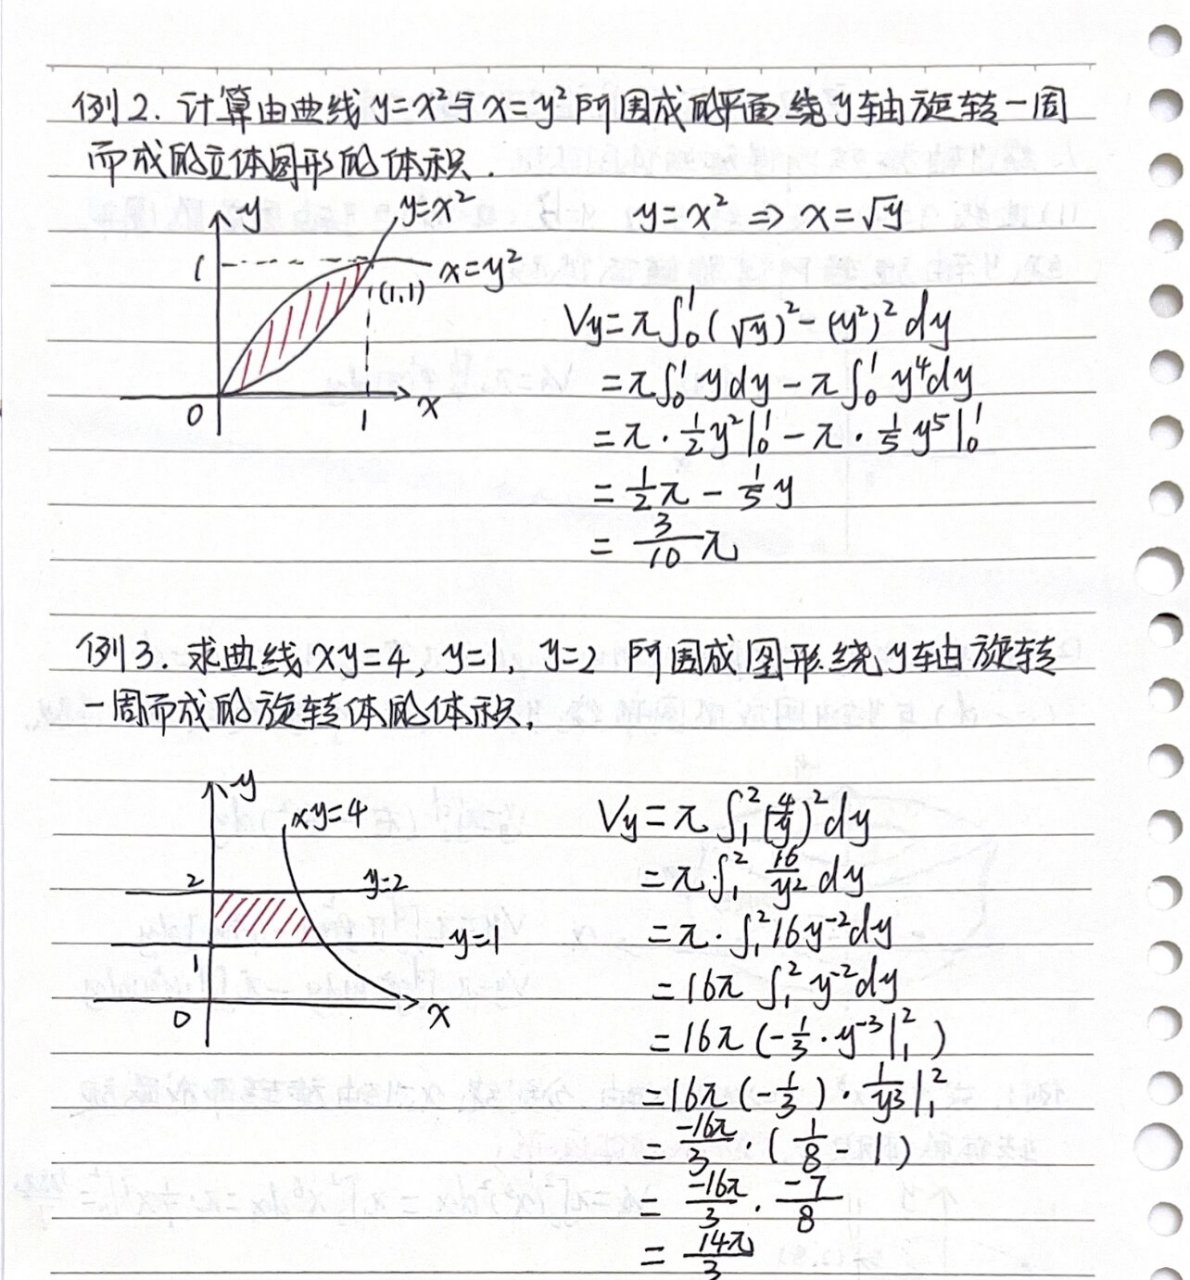 例2. 计算由曲线 y=x²与 x=y² 所围成的平面绕y轴旋转一周
而成的立体图形的体积.
y
y=x²
1
x=y²
(1,1)
0
1
x
y=x² ⇒ x=√y
Vy=π∫₀¹(√y)²-(y²)²dy
=π∫₀¹ydy-π∫₀¹y⁴dy
=π·1/2y²|₀¹-π·1/5y⁵|₀¹
=1/2π-1/5y
=3/10π
例3. 求曲线xy=4, y=1, y=2 所围成图形绕y轴旋转
一周而成的旋转体的体积.
y
xy=4
2
y=2
y=1
1
0
x
Vy=π∫₁²(4/y)²dy
=π∫₁²16/y²dy
=π·∫₁²16y⁻²dy
=16π∫₁²y⁻²dy
=16π(-1/3·y⁻³|₁²)
=16π(-1/3)·1/y³|₁²
=-16π/3·(1/8-1)
=-16π/3·-7/8
=14π/3